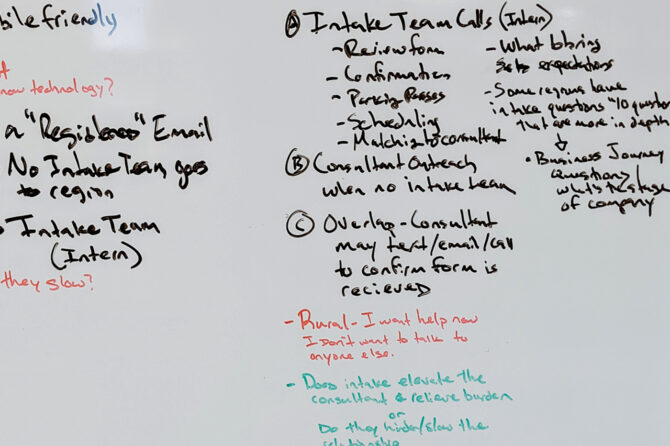 bile friendly
now technology?
a "Registered" Email
No Intake Team goes
to region
Intake Team
(Intern)
they slow?
A Intake Team Calls (Intern)
- Review form
- Confirmation
- Parking Passes
- Scheduling
- Matching to consultant
- What to bring
sets expectations
- Some regions have
intake questions "10 question
that are more in depth
• Business Journey
Questions/
what's the stage
of company
B Consultant Outreach
when no intake team
C Overlap - Consultant
may text/email/call
to confirm form is
recieved
- Rural - I want help now
I don't want to talk to
anyone else.
- Does intake elevate the
consultant & relieve burden
or
Do they hinder/slow the
relationship